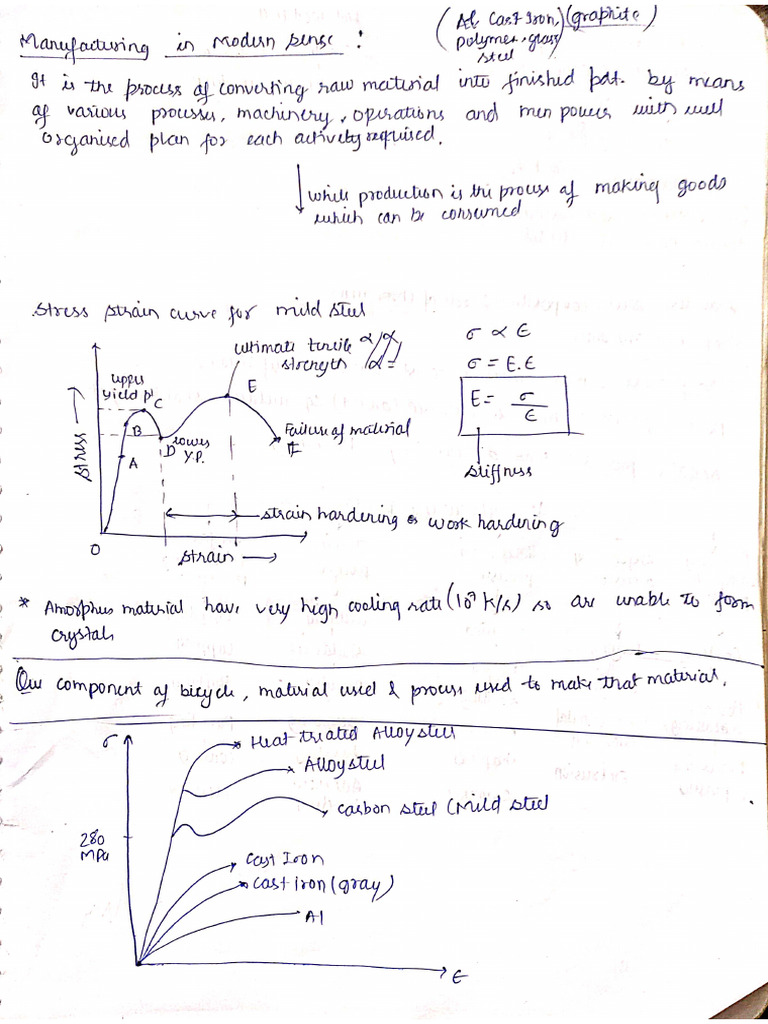 (Al Cast Iron,)(graphite)
polymer, glass
steel
Manufacturing in modern sense :
It is the process of converting raw material into finished pdt. by means
of various processes, machinery, operations and men power with well
organised plan for each activity required.
while production is the process of making goods
which can be consumed
Stress strain curve for mild steel
ultimate tensile
strength
upper
yield pt
C
E
B
A
D lower
Y.P.
Failure of material
F
Stress →
O
Strain →
strain hardening or work hardening
σ ∝ ε
σ = E.ε
E = σ/ε
stiffness
* Amorphus material have very high cooling rate (10⁷ K/s) so are unable to form
crystals
Que component of bicycle, material used & process used to make that material.
σ
Heat treated Alloy steels
Alloy steel
Carbon steel (Mild steel
280
MPa
Cast Iron
Cast iron (gray)
Al
ε